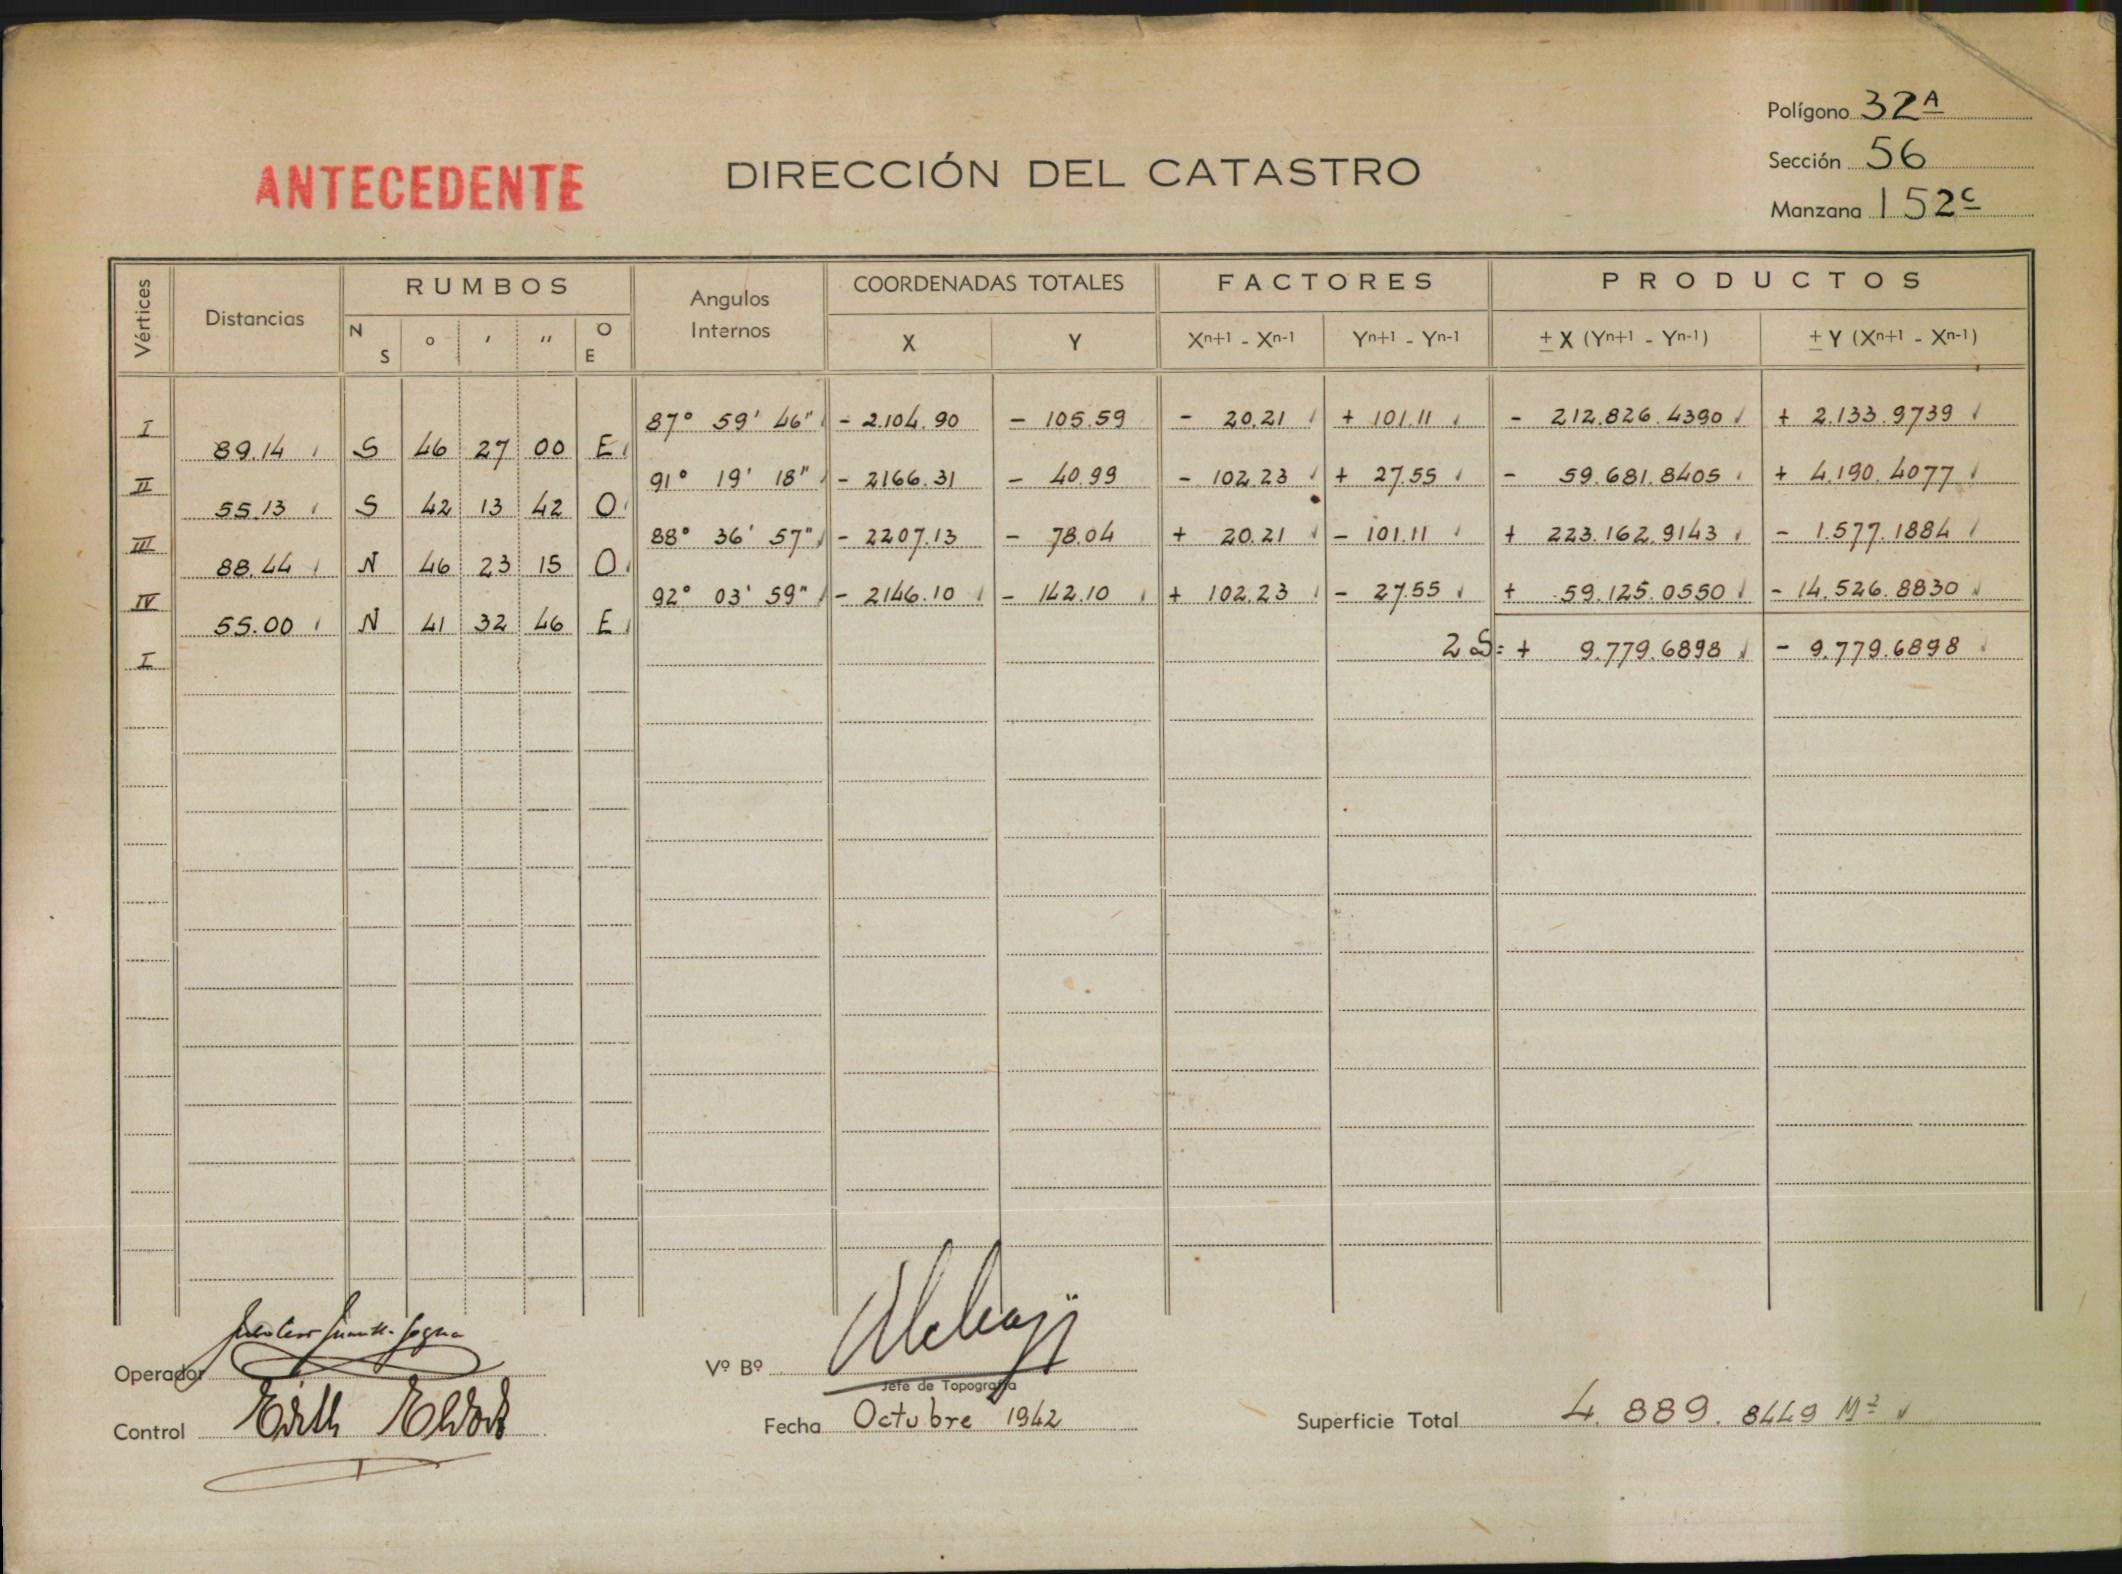 Polígono 32A
ANTECEDENTE DIRECCIÓN DEL CATASTRO
Sección 56
Manzana 152c
Vértices Distancias RUMBOS Angulos Internos COORDENADAS TOTALES FACTORES PRODUCTOS
N S ° ' " O E X Y Xn+1 - Xn-1 Yn+1 - Yn-1 ± X (Yn+1 - Yn-1) ± Y (Xn+1 - Xn-1)
I 87° 59' 46" - 2.104.90 - 105.59 - 20.21 + 101.11 - 212.826.4390 + 2.133.9739
89.14 S 46 27 00 E
II 91° 19' 18" - 2166.31 - 40.99 - 102.23 + 27.55 - 59.681.8405 + 4.190.4077
55.13 S 42 13 42 O
III 88° 36' 57" - 2207.13 - 78.04 + 20.21 - 101.11 + 223.162.9143 - 1.577.1884
88.44 N 46 23 15 O
IV 92° 03' 59" - 2146.10 - 142.10 + 102.23 - 27.55 + 59.125.0550 - 14.526.8830
55.00 N 41 32 46 E
I 2S= + 9.779.6898 - 9.779.6898
Operador
Vº Bº
Jefe de Topografía
Control
Fecha Octubre 1942
Superficie Total 4.889.8449 M²